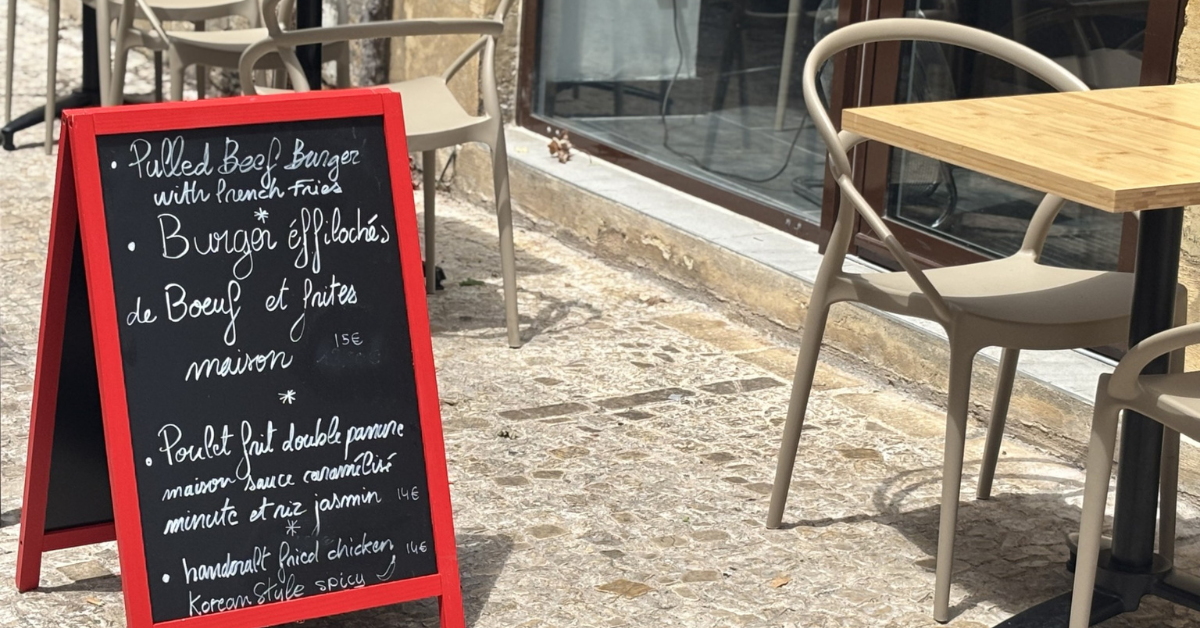 • Pulled Beef Burger
with French Fries
*
• Burger éffilochés
de Boeuf et frites
maison 15€
*
• Poulet frit double panure
maison sauce caramélisé
minute et riz jasmin 14€
*
• handcraft fried chicken 14€
Korean Style spicy